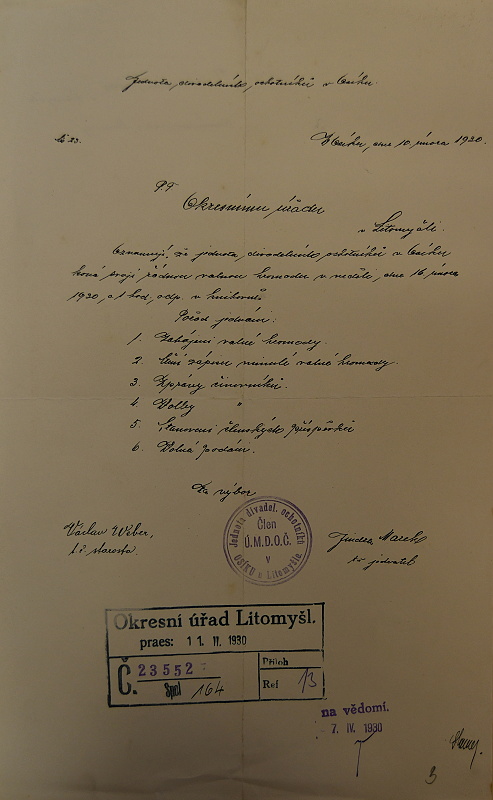 Jednota divadelních ochotníků v Osíku.
No 23.
V Osíku, dne 10. února 1930.
P.T.
Okresnímu úřadu
v Litomyšli.
Oznamuji, že jednota divadelních ochotníků v Osíku
koná svoji řádnou valnou hromadu v neděli, dne 16. února
1930, o 1 hod. odp. v knihovně
Pořad jednání:
1. Zahájení valné hromady.
2. Čtení zápisu minulé valné hromady.
3. Zprávy činovníků.
4. Volby "
5. Stanovení členských příspěvků
6. Volné podání.
Za výbor
Václav Weber,
t. č. starosta.
Jednota divadel. ochotníků
Člen
Ú.M.D.O.Č.
v
OSÍKU u Litomyšle.
Jindra Marek
t. č. jednatel
Okresní úřad Litomyšl.
praes: 11. II. 1930
Č. 23552
Spol 164
Příloh
Ref 13
na vědomí.
7. IV. 1930
3